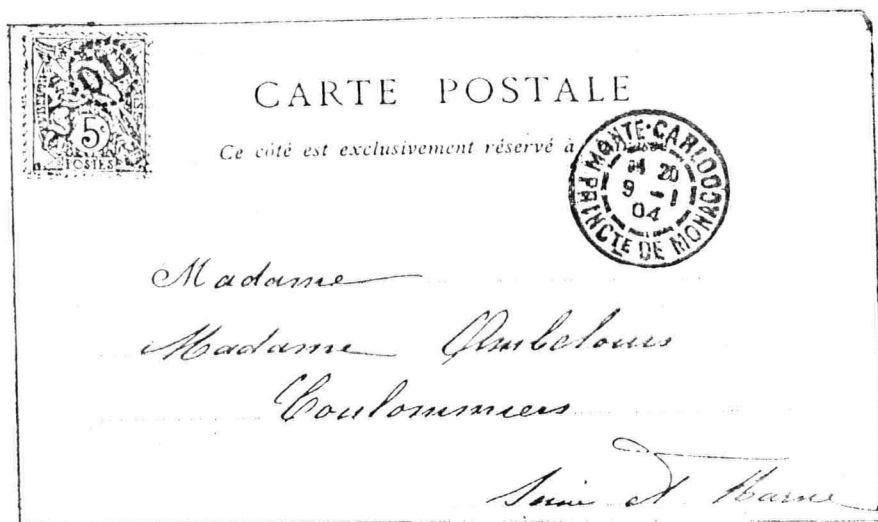 5c
POSTES
CARTE POSTALE
Ce côté est exclusivement réservé à
MONTE-CARLO
20
9 -1
04
PRINCTE DE MONACO
Madame
Madame Ambelouis
Coulommiers
Seine et Marne